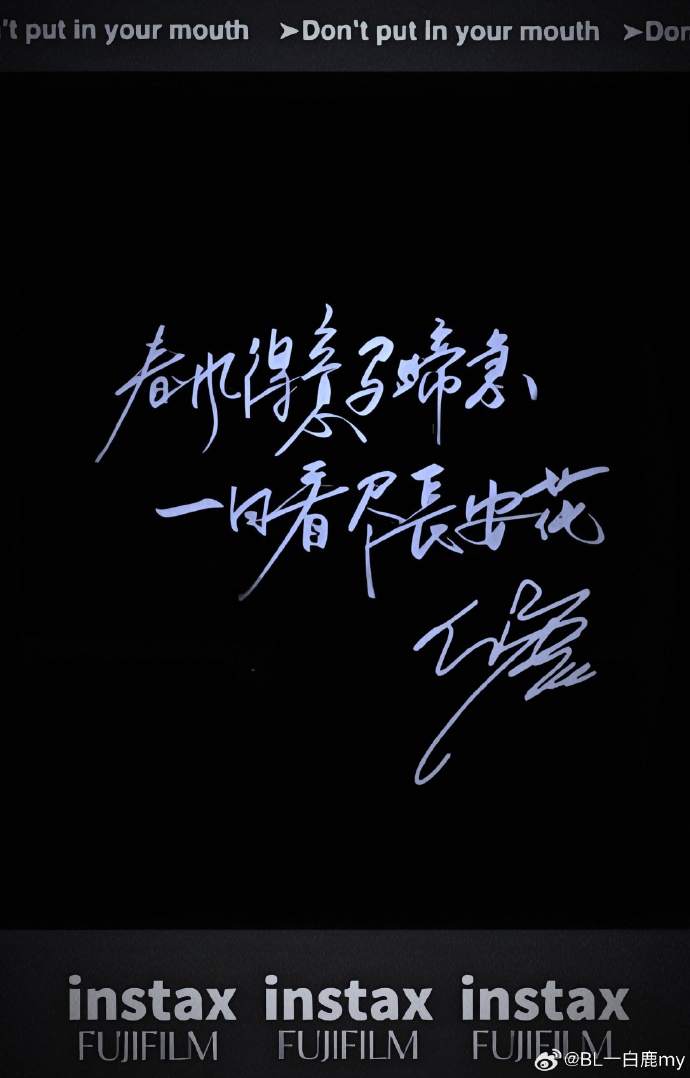 't put in your mouth ➤Don't put In your mouth ➤Don
春风得意马蹄急
一日看尽長安花
instax instax instax
FUJIFILM FUJIFILM FUJIFILM
@BL一白鹿my